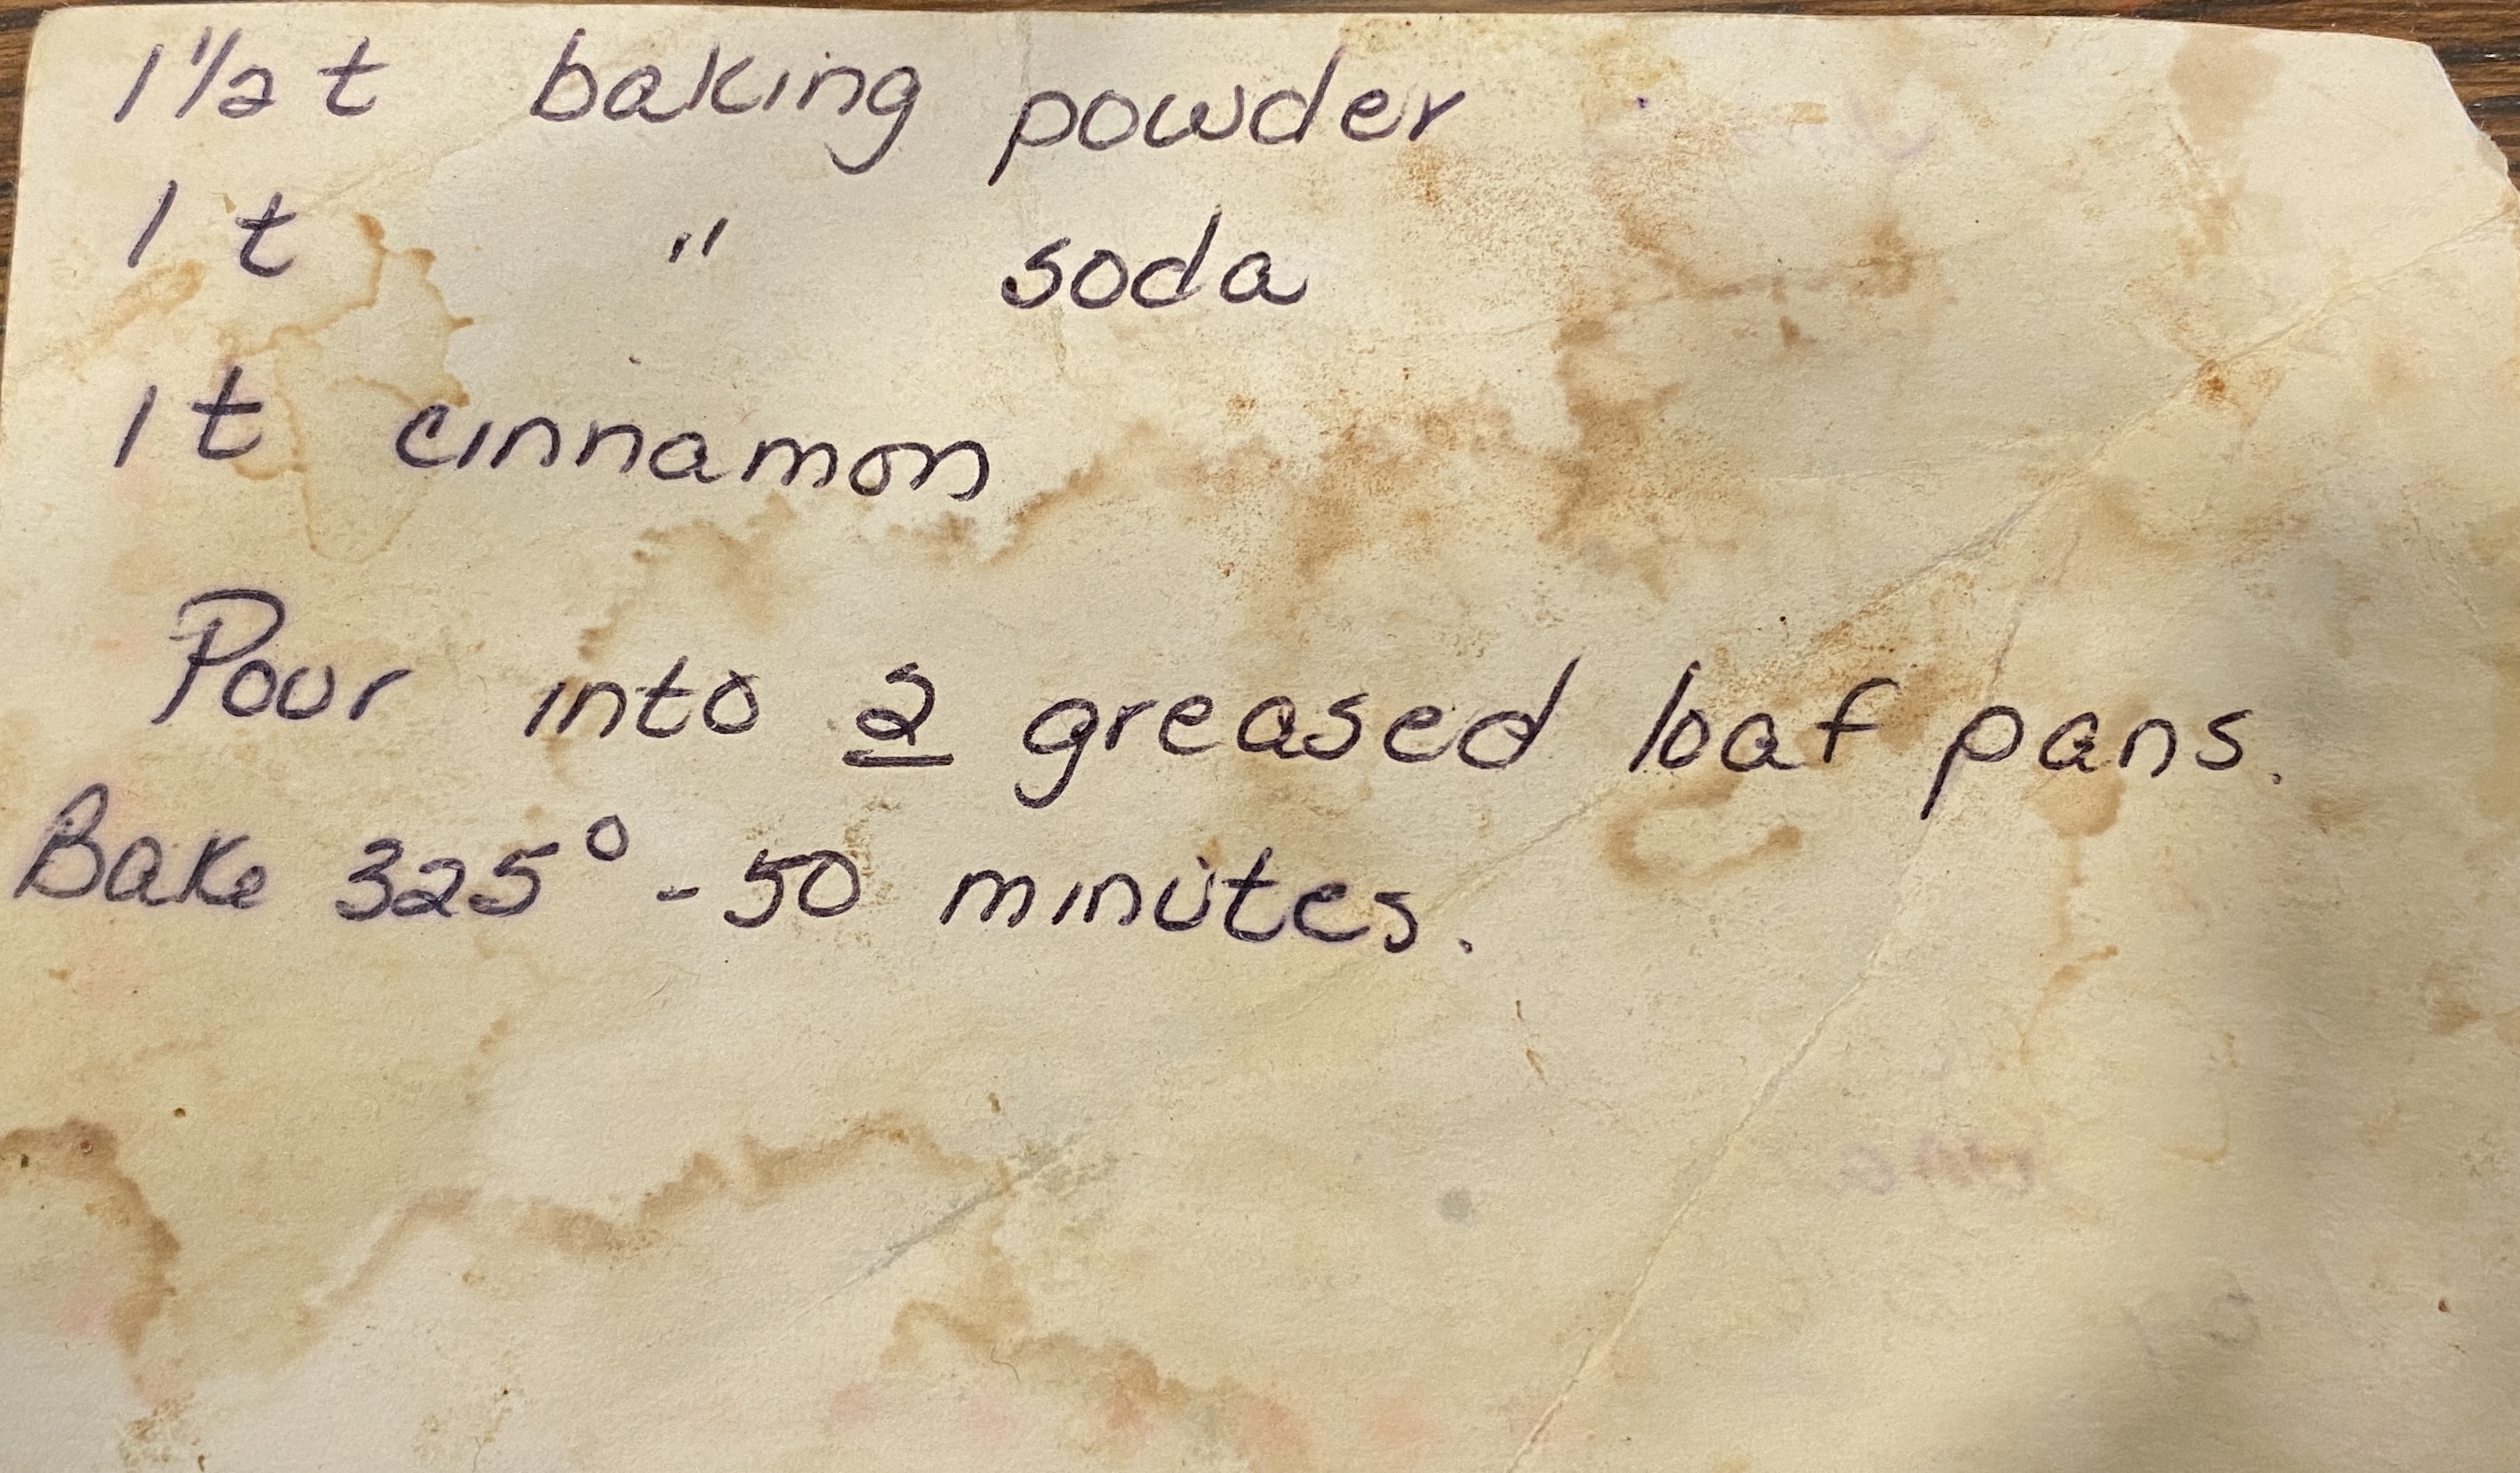 1 1/2 t baking powder
1 t " soda
1 t cinnamon
Pour into 2 greased loaf pans.
Bake 325° - 50 minutes.